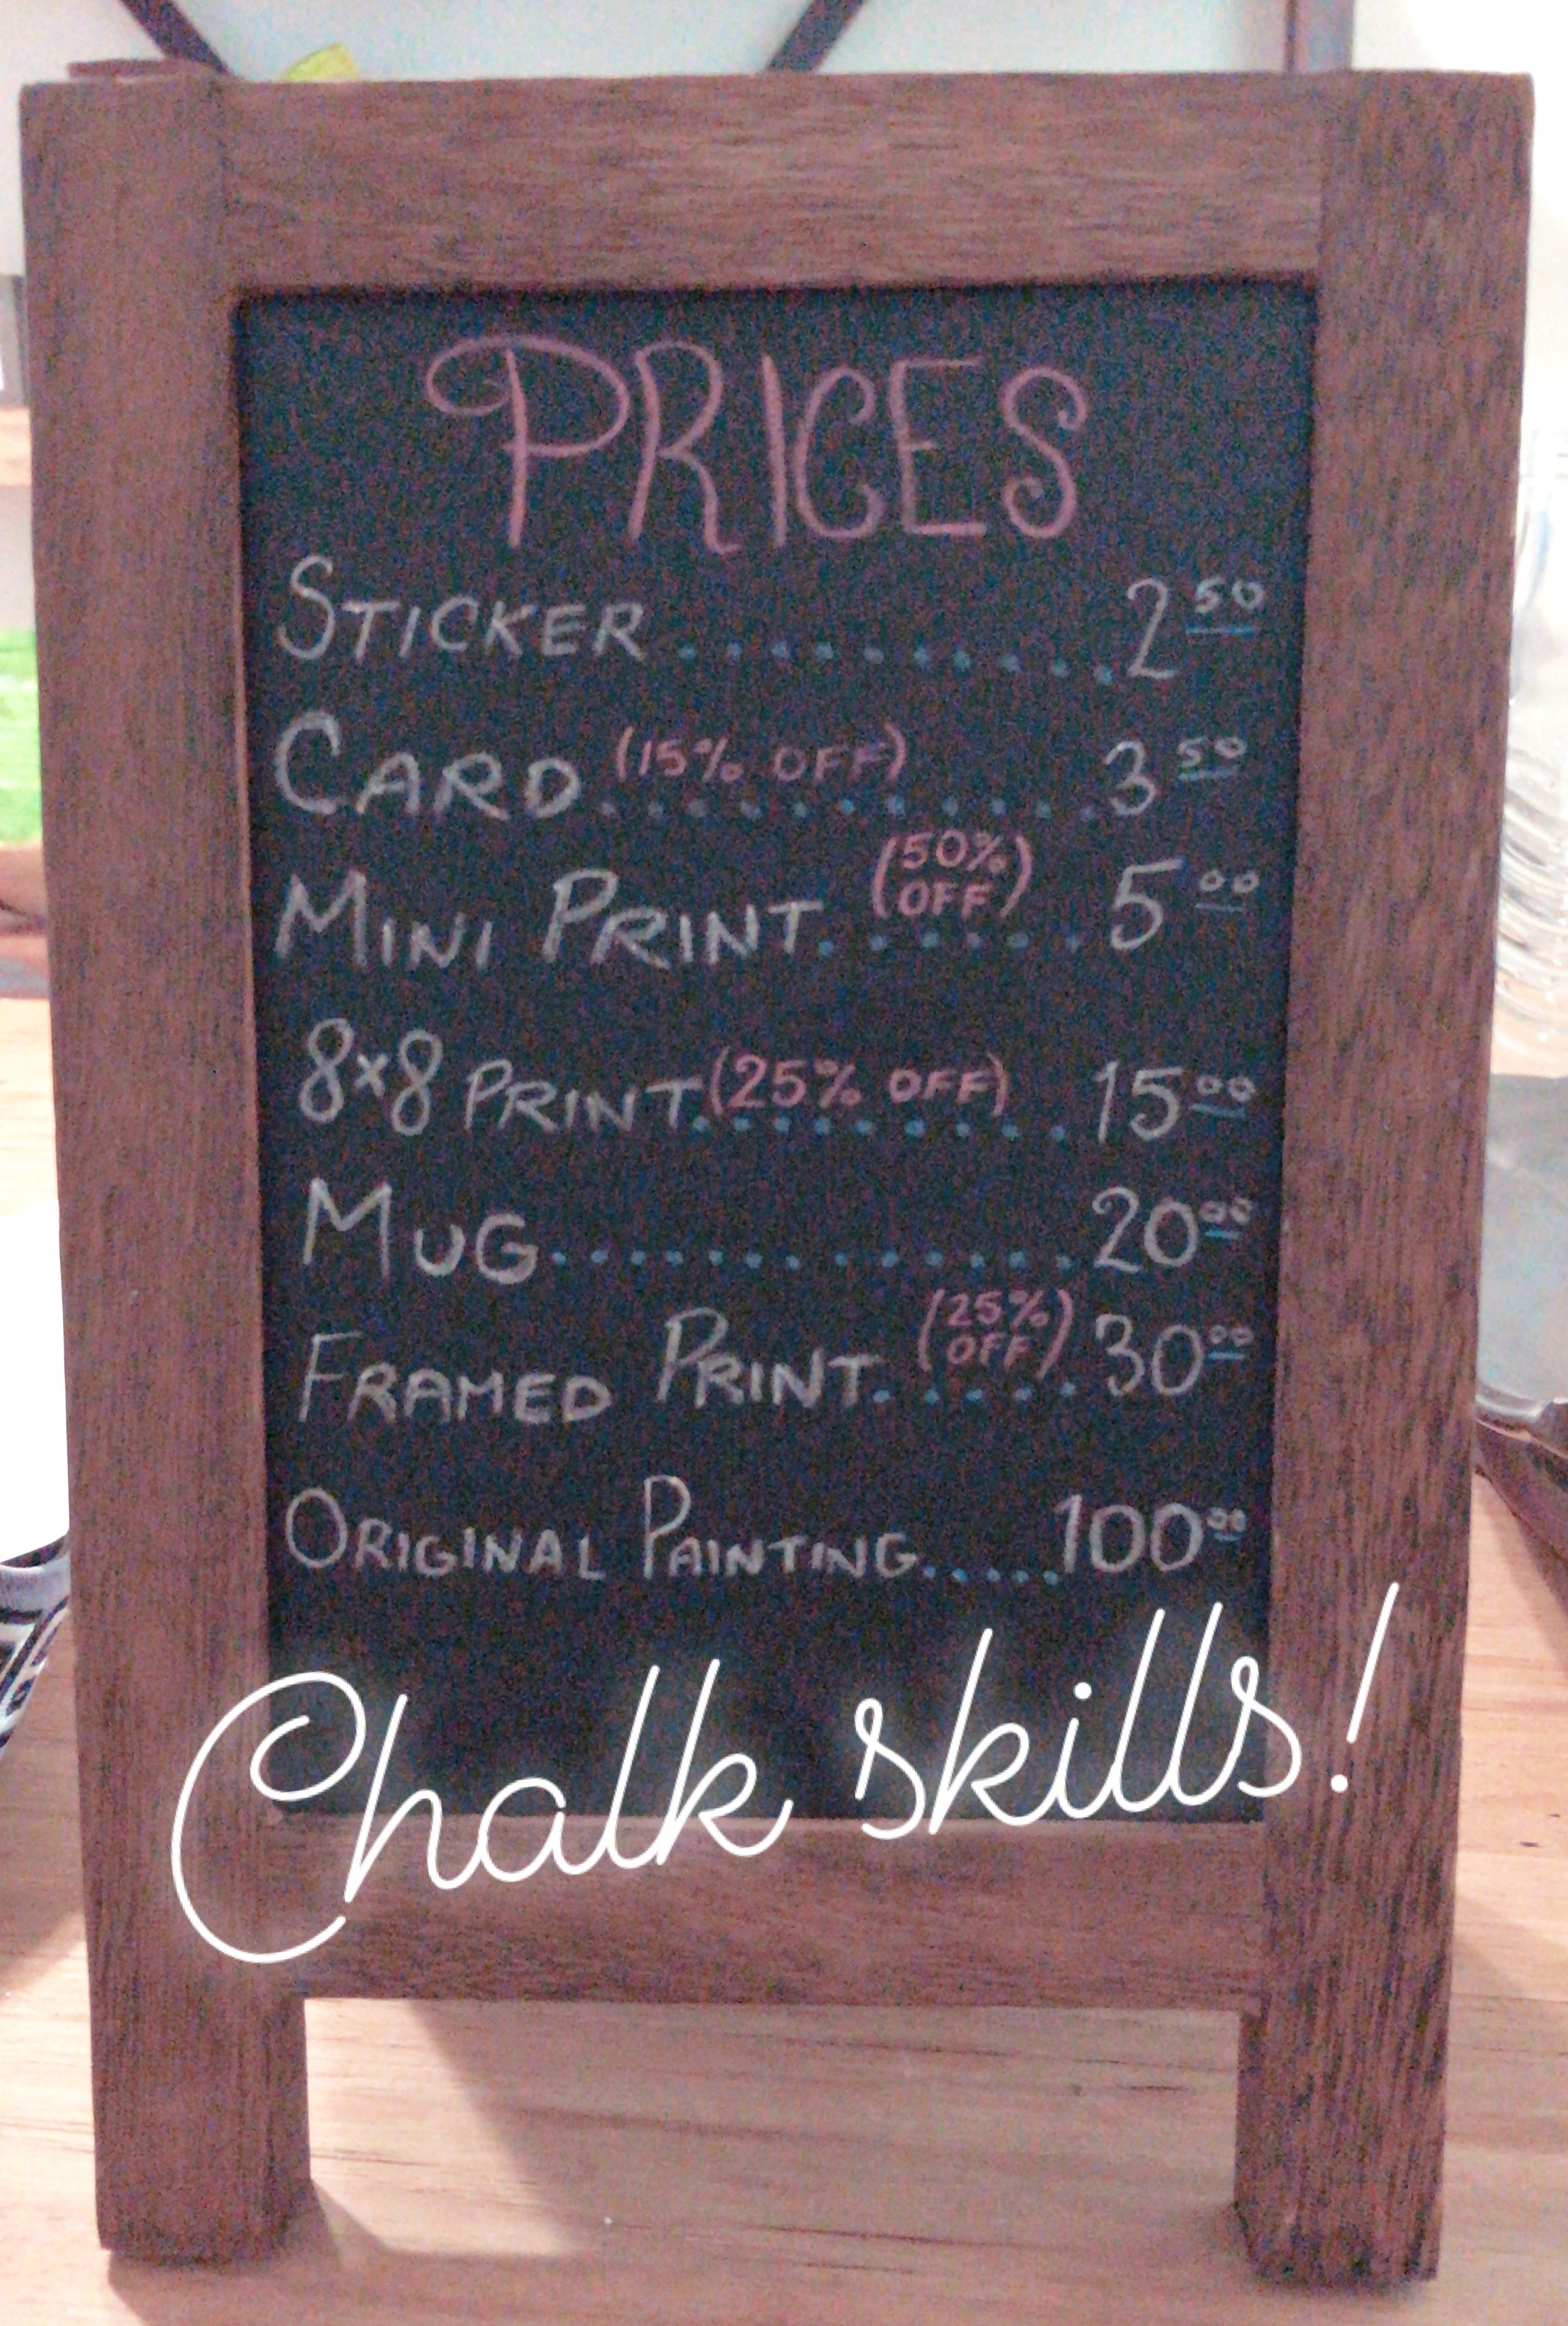 PRICES
STICKER..........2 50
CARD (15% OFF)...........3 50
MINI PRINT. (50% OFF).....5 00
8x8 PRINT (25% OFF).........15 00
MUG.............20 00
FRAMED PRINT. (25% OFF)....30 00
ORIGINAL PAINTING.....100 00
Chalk skills!